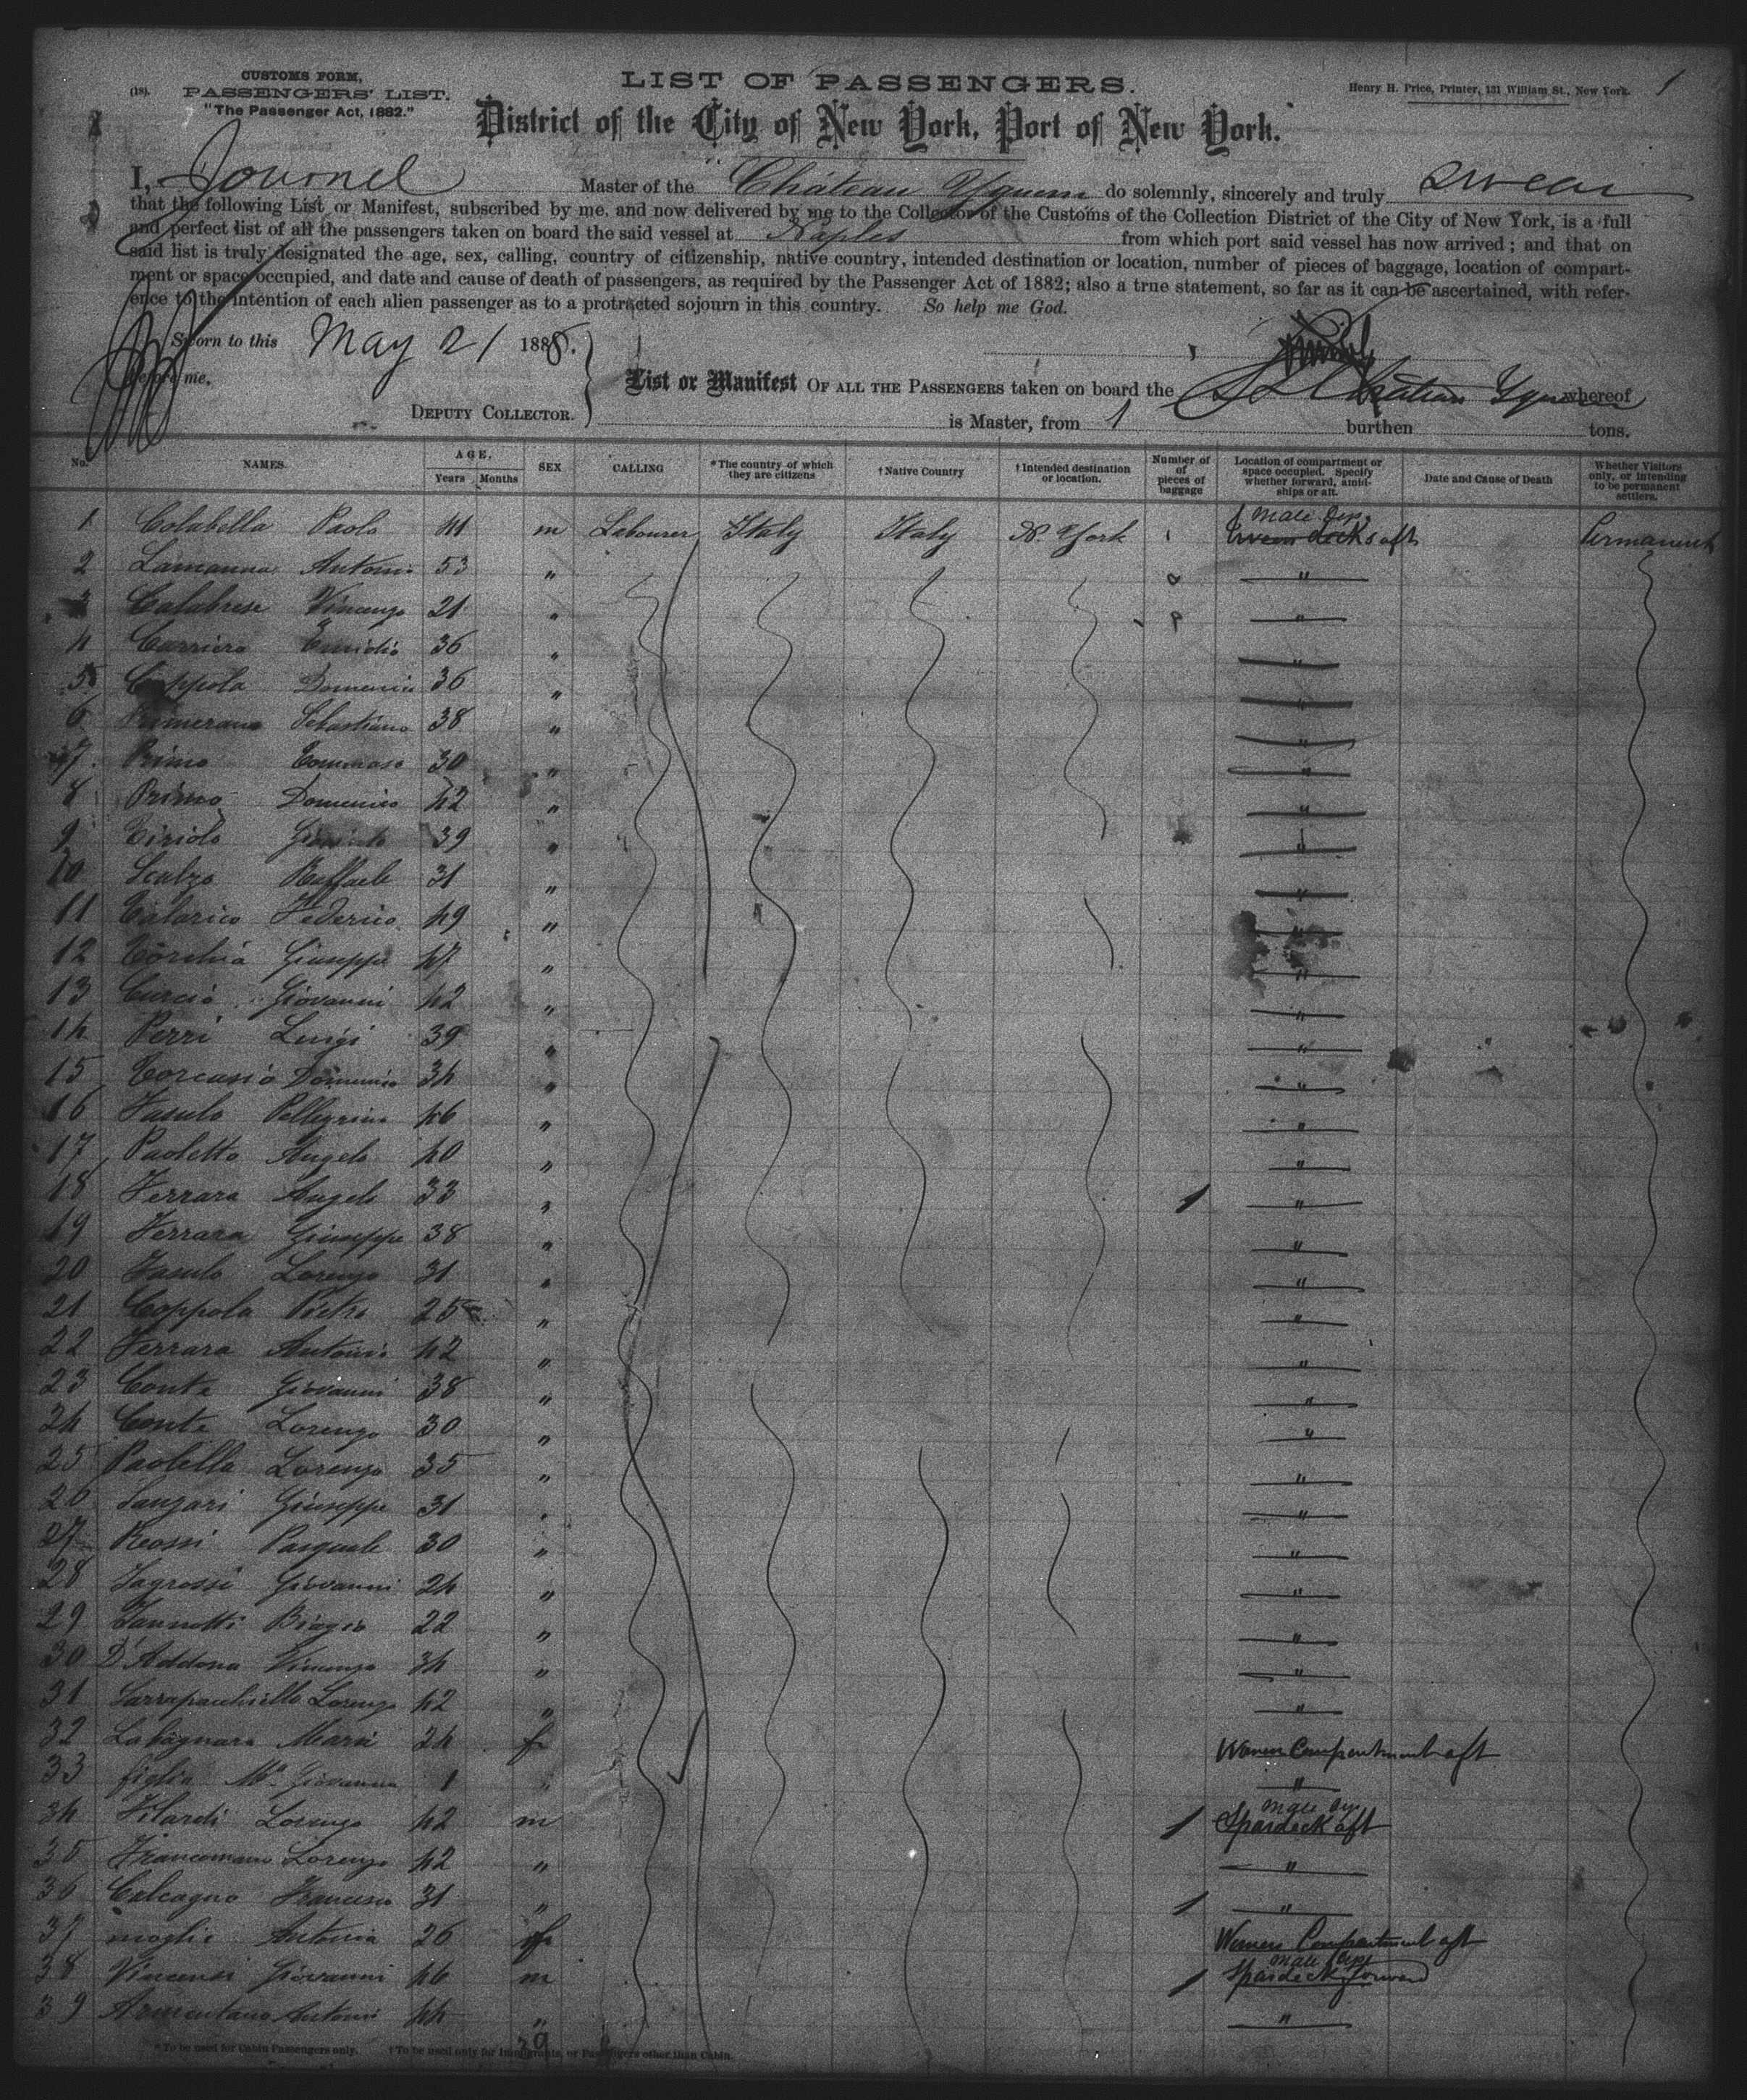 (18). CUSTOMS FORM,
PASSENGERS' LIST.
"The Passenger Act, 1882."
LIST OF PASSENGERS.
District of the City of New York, Port of New York.
Henry H. Price, Printer, 131 William St., New York. 1
I, Journel Master of the Château Yquem do solemnly, sincerely and truly swear
that the following List or Manifest, subscribed by me, and now delivered by me to the Collector of the Customs of the Collection District of the City of New York, is a full
and perfect list of all the passengers taken on board the said vessel at Naples from which port said vessel has now arrived; and that on
said list is truly designated the age, sex, calling, country of citizenship, native country, intended destination or location, number of pieces of baggage, location of compart-
ment or space occupied, and date and cause of death of passengers, as required by the Passenger Act of 1882; also a true statement, so far as it can be ascertained, with refer-
ence to the intention of each alien passenger as to a protracted sojourn in this country. So help me God.
Sworn to this May 21 1888.
before me,
DEPUTY COLLECTOR.
List or Manifest OF ALL THE PASSENGERS taken on board the SS Château Yquem whereof
is Master, from 1 burthen tons.
No. NAMES. AGE, Years Months SEX CALLING *The country of which they are citizens †Native Country †Intended destination or location. Number of pieces of baggage Location of compartment or space occupied. Specify whether forward, amidships or aft. Date and Cause of Death Whether Visitors only, or intending to be permanent settlers.
1 Colabella Paolo 41 m Labourer Italy Italy N. York 1 male tween decks aft Permanent
2 Lamanna Antonio 53 " "
3 Calabrese Vincenzo 21 " "
4 Carriero Emidio 36 " "
5 Coppola Domenico 36 " "
6 Sebastiano 38 " "
7 Primo Tommaso 30 " "
8 Primo Domenico 42 " "
9 Ciriolo 39 " "
10 Scalzo Raffaele 31 " "
11 Talarico Federico 49 " "
12 Torchia Giuseppe 47 " "
13 Curcio Giovanni 42 " "
14 Perri Luigi 39 " "
15 Torcasio Domenico 34 " "
16 Fasulo Pellegrino 46 " "
17 Paoletta Angelo 40 " "
18 Ferrara Angelo 33 " 1 "
19 Ferrara Giuseppe 38 " "
20 Fasulo Lorenzo 31 " "
21 Coppola Pietro 25 " "
22 Ferrara Antonio 42 " "
23 Conte Giovanni 38 " "
24 Conte Lorenzo 30 " "
25 Paolella Lorenzo 35 " "
26 Sanzari Giuseppe 31 " "
27 Reossi Pasquale 30 " "
28 Sagrossi Giovanni 24 " "
29 Iannotti Biagio 22 " "
30 D'Addona Vincenzo 34 " "
31 Sarrapacchiello Lorenzo 42 " "
32 Labagnara Maria 24 f Women Compartment aft
33 figlia Ma. Giovanna 1 " "
34 Filardi Lorenzo 42 m 1 male Spardeck aft
35 Francomano Lorenzo 42 " "
36 Calcagno Francesco 31 " 1 "
37 moglie Antonia 26 f Women Compartment aft
38 Vincensi Giovanni 46 m 1 male Spardeck forward
39 Armentano Antonio 44 " "
39
*To be used for Cabin Passengers only. †To be used only for Immigrants, or Passengers other than Cabin.